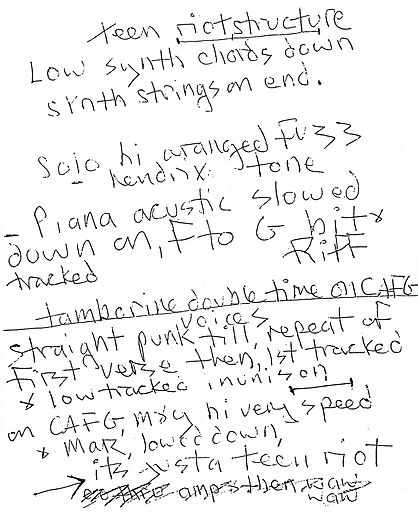 teen riotstructure
Low synth chords down
synth strings on end.
Solo hi aranged Fuzz
hendrix tone
- Piana acustic slowed
down on, F to G bit x
tracked Riff
tamberine double time on CAFG
voices
straight punk till, repeat of
first verse then, 1st tracked
x low tracked in unison
on CAFG, hi very speed
x lowed down,
its justa teen riot
amps then